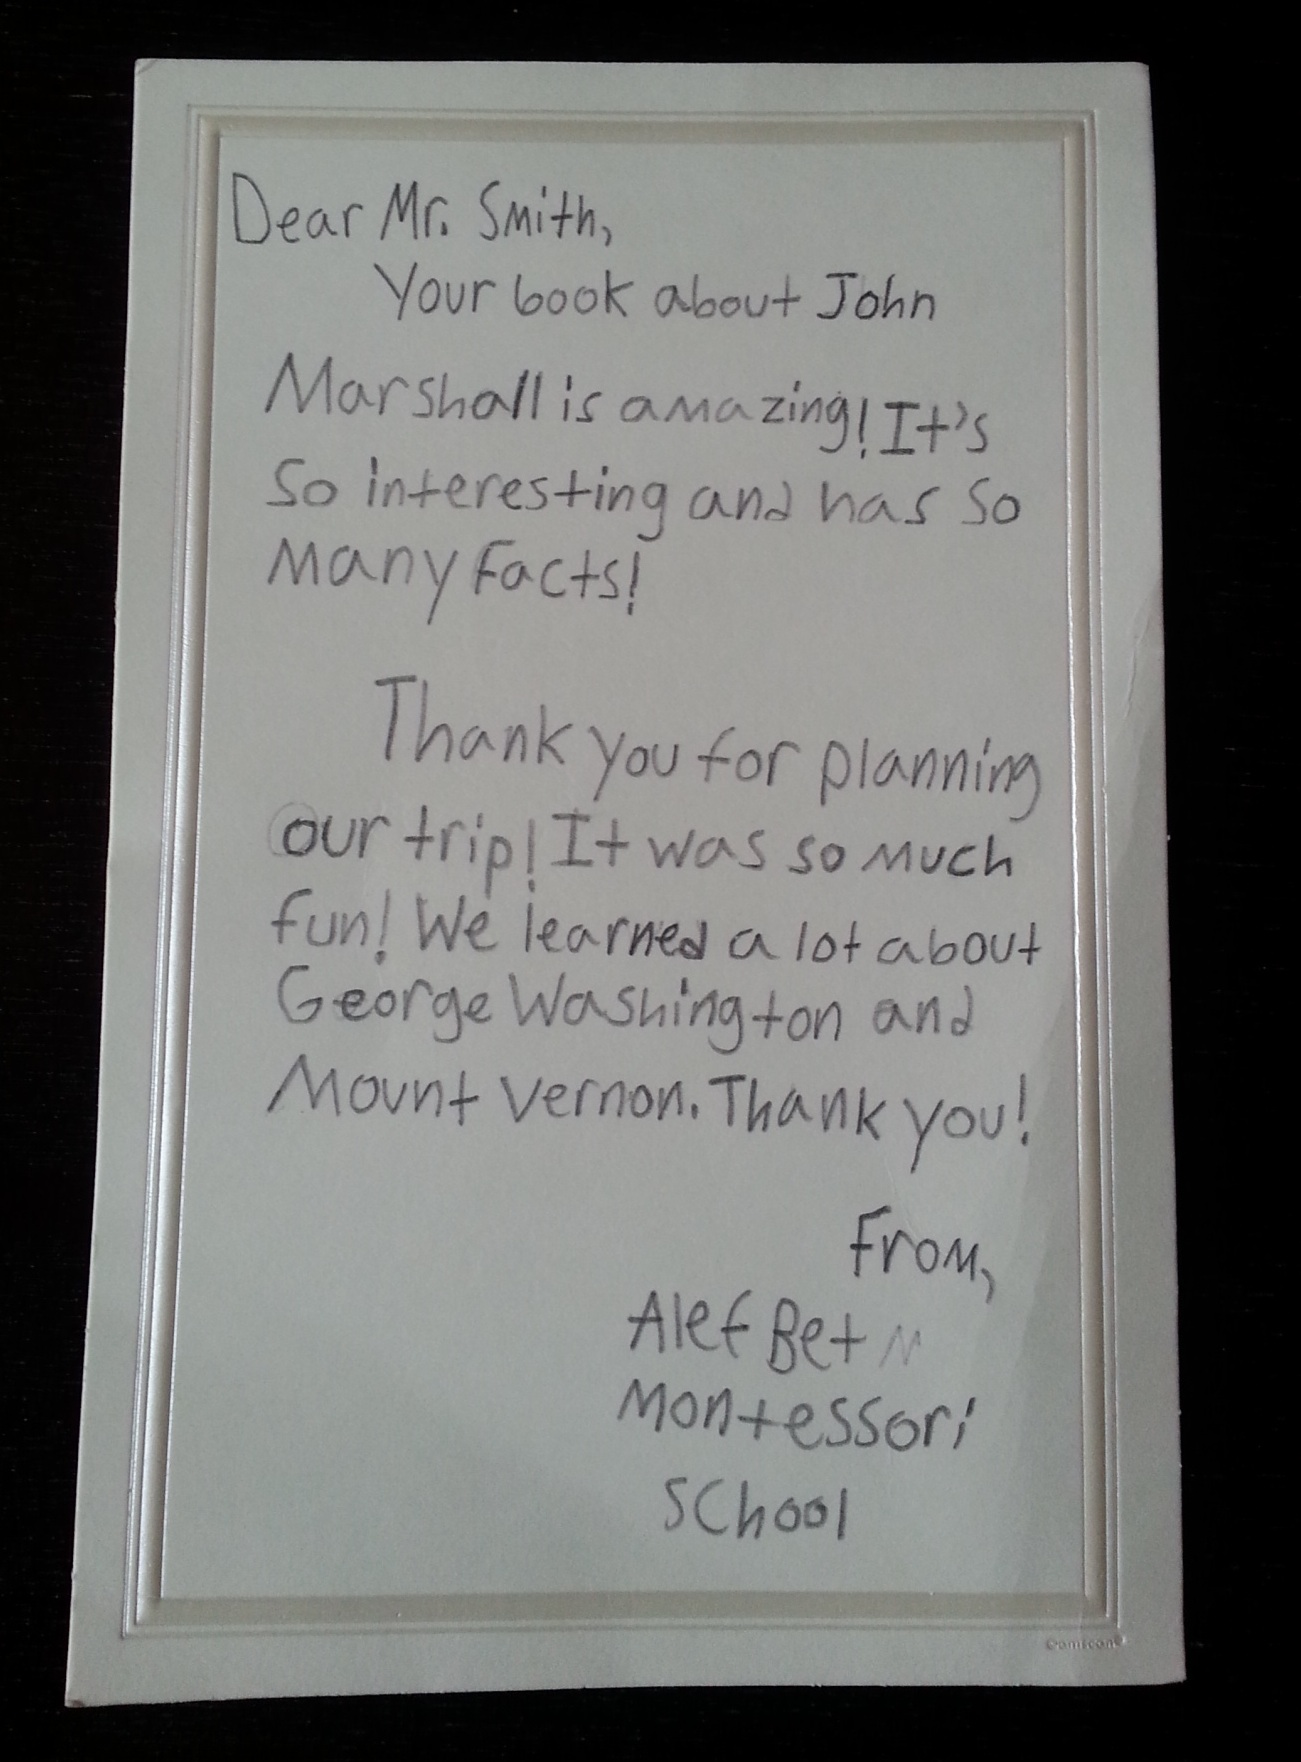 Dear Mr. Smith,
Your book about John
Marshall is amazing! It's
So interesting and has so
many facts!
Thank you for planning
our trip! It was so much
fun! We learned a lot about
George Washington and
Mount Vernon. Thank you!
From,
Alef Bet M
Montessori
School
©amscan®